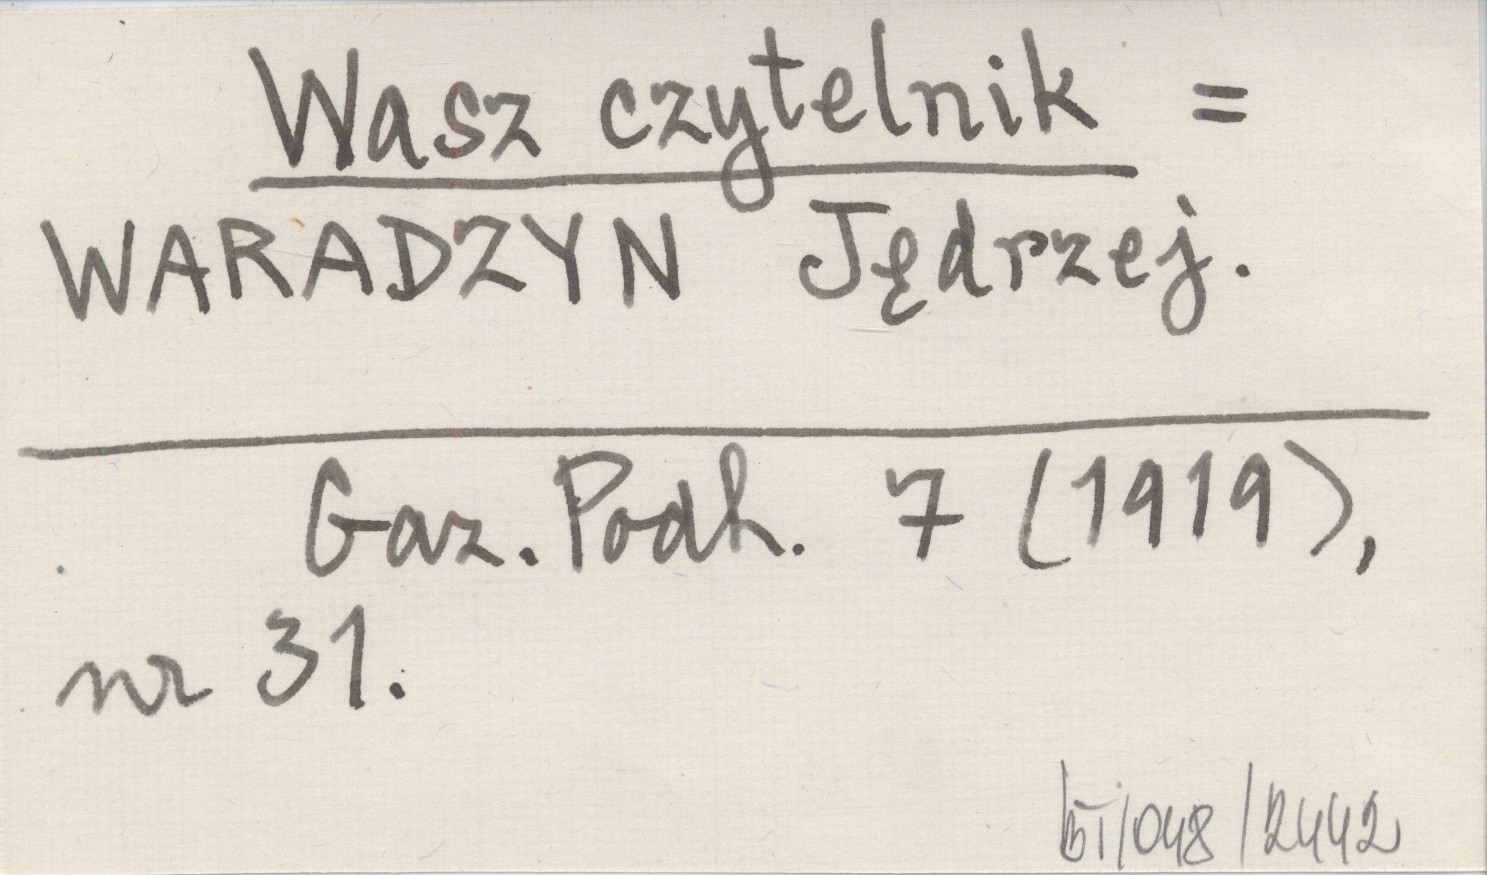 Wasz czytelnik =
WARADZYN Jędrzej.
Gaz. Podh. 7 (1919),
nr 31.
BI/048/2442